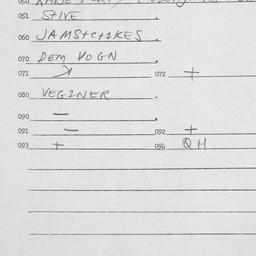 051 STIVE
060 JAMS+C+1KES
070 DEM VOGN
071 072 +
080 VEGINER
090 —
091 — 092 +
093 + 094 QH